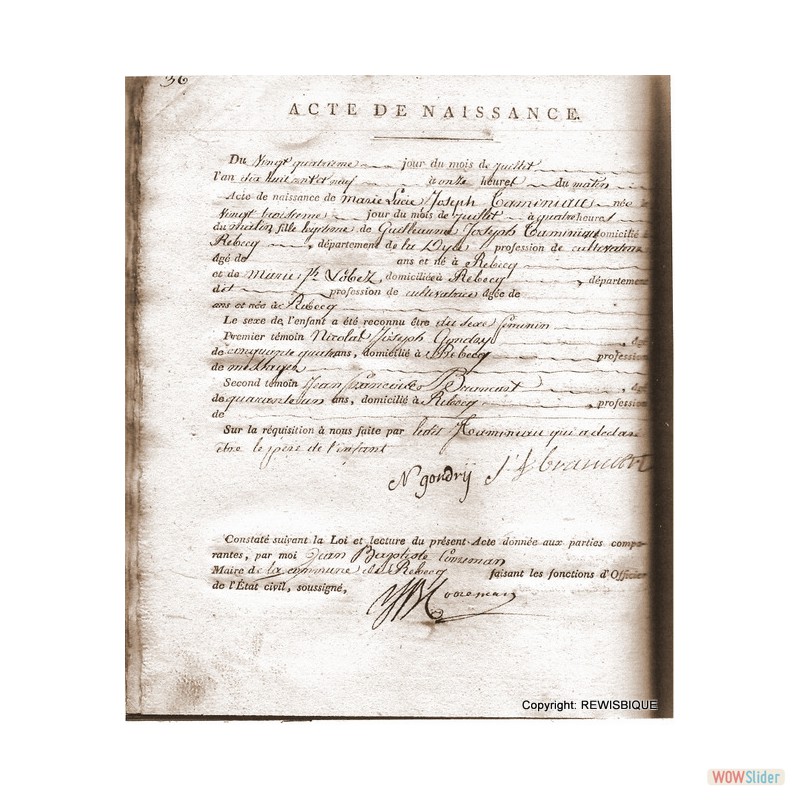 36
ACTE DE NAISSANCE.
Du Vingt quatrieme jour du mois de juillet
l'an dix huit cent et neuf à onze heures du matin
Acte de naissance de marie Lucie Joseph Taminiau née le
Vingt troisieme jour du mois de juillet à quatre heures
du matin fille legitime de Guilliaume Joseph Taminiau domicilié à
Rebecq, département de la Dyle profession de cultivateur
âgé de ans et né à Rebecq
et de Marie, domiciliée à Rebecq, département
dit profession de cultivatrice âgée de
ans et née à Rebecq
Le sexe de l'enfant a été reconnu être du sexe feminin
Premier témoin Nicolas Joseph Gondry, âgé
de cinquante quatre ans, domicilié à Rebecq, profession
de
Second témoin Jean francois, âgé
de quarante un ans, domicilié à Rebecq, profession
de
Sur la réquisition à nous faite par ledit Taminiau qui a declaré
être le pere de l'enfant
N gondrij
Constaté suivant la Loi et lecture du présent Acte donnée aux parties compa-
rantes, par moi Jean Baptiste
Maire de la commune de Rebecq faisant les fonctions d'Officier
de l'État civil, soussigné,
Copyright: REWISBIQUE
WOWSlider